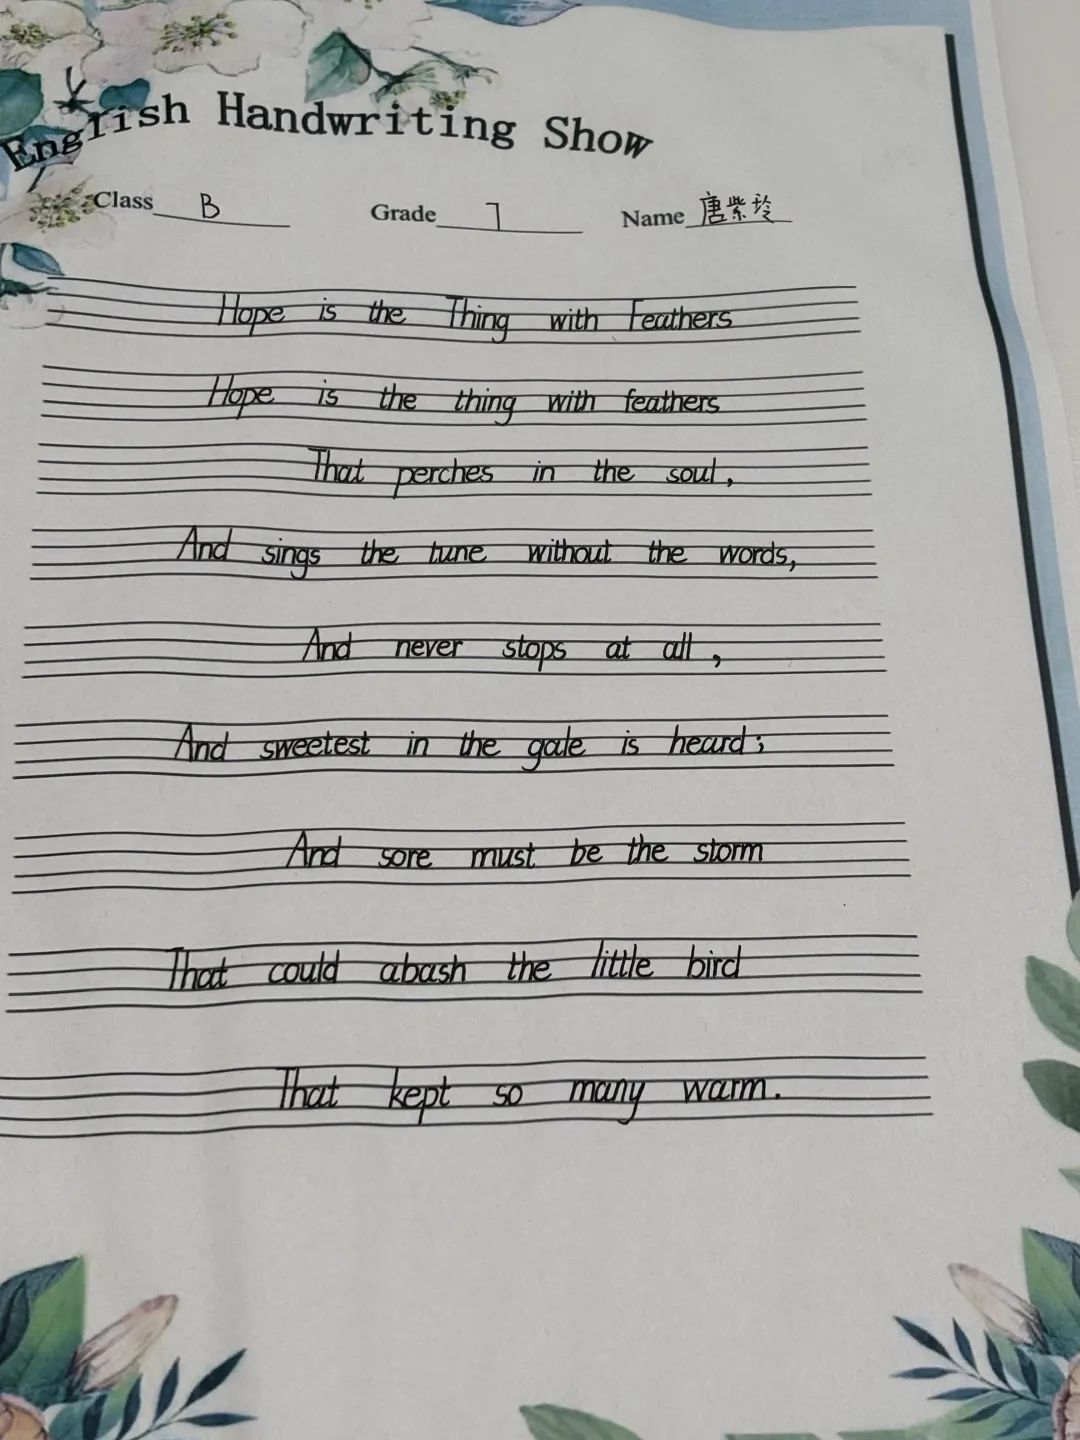 English Handwriting Show
Class B Grade 7 Name 唐紫玲
Hope is the Thing with Feathers
Hope is the thing with feathers
That perches in the soul,
And sings the tune without the words,
And never stops at all,
And sweetest in the gale is heard;
And sore must be the storm
That could abash the little bird
That kept so many warm.